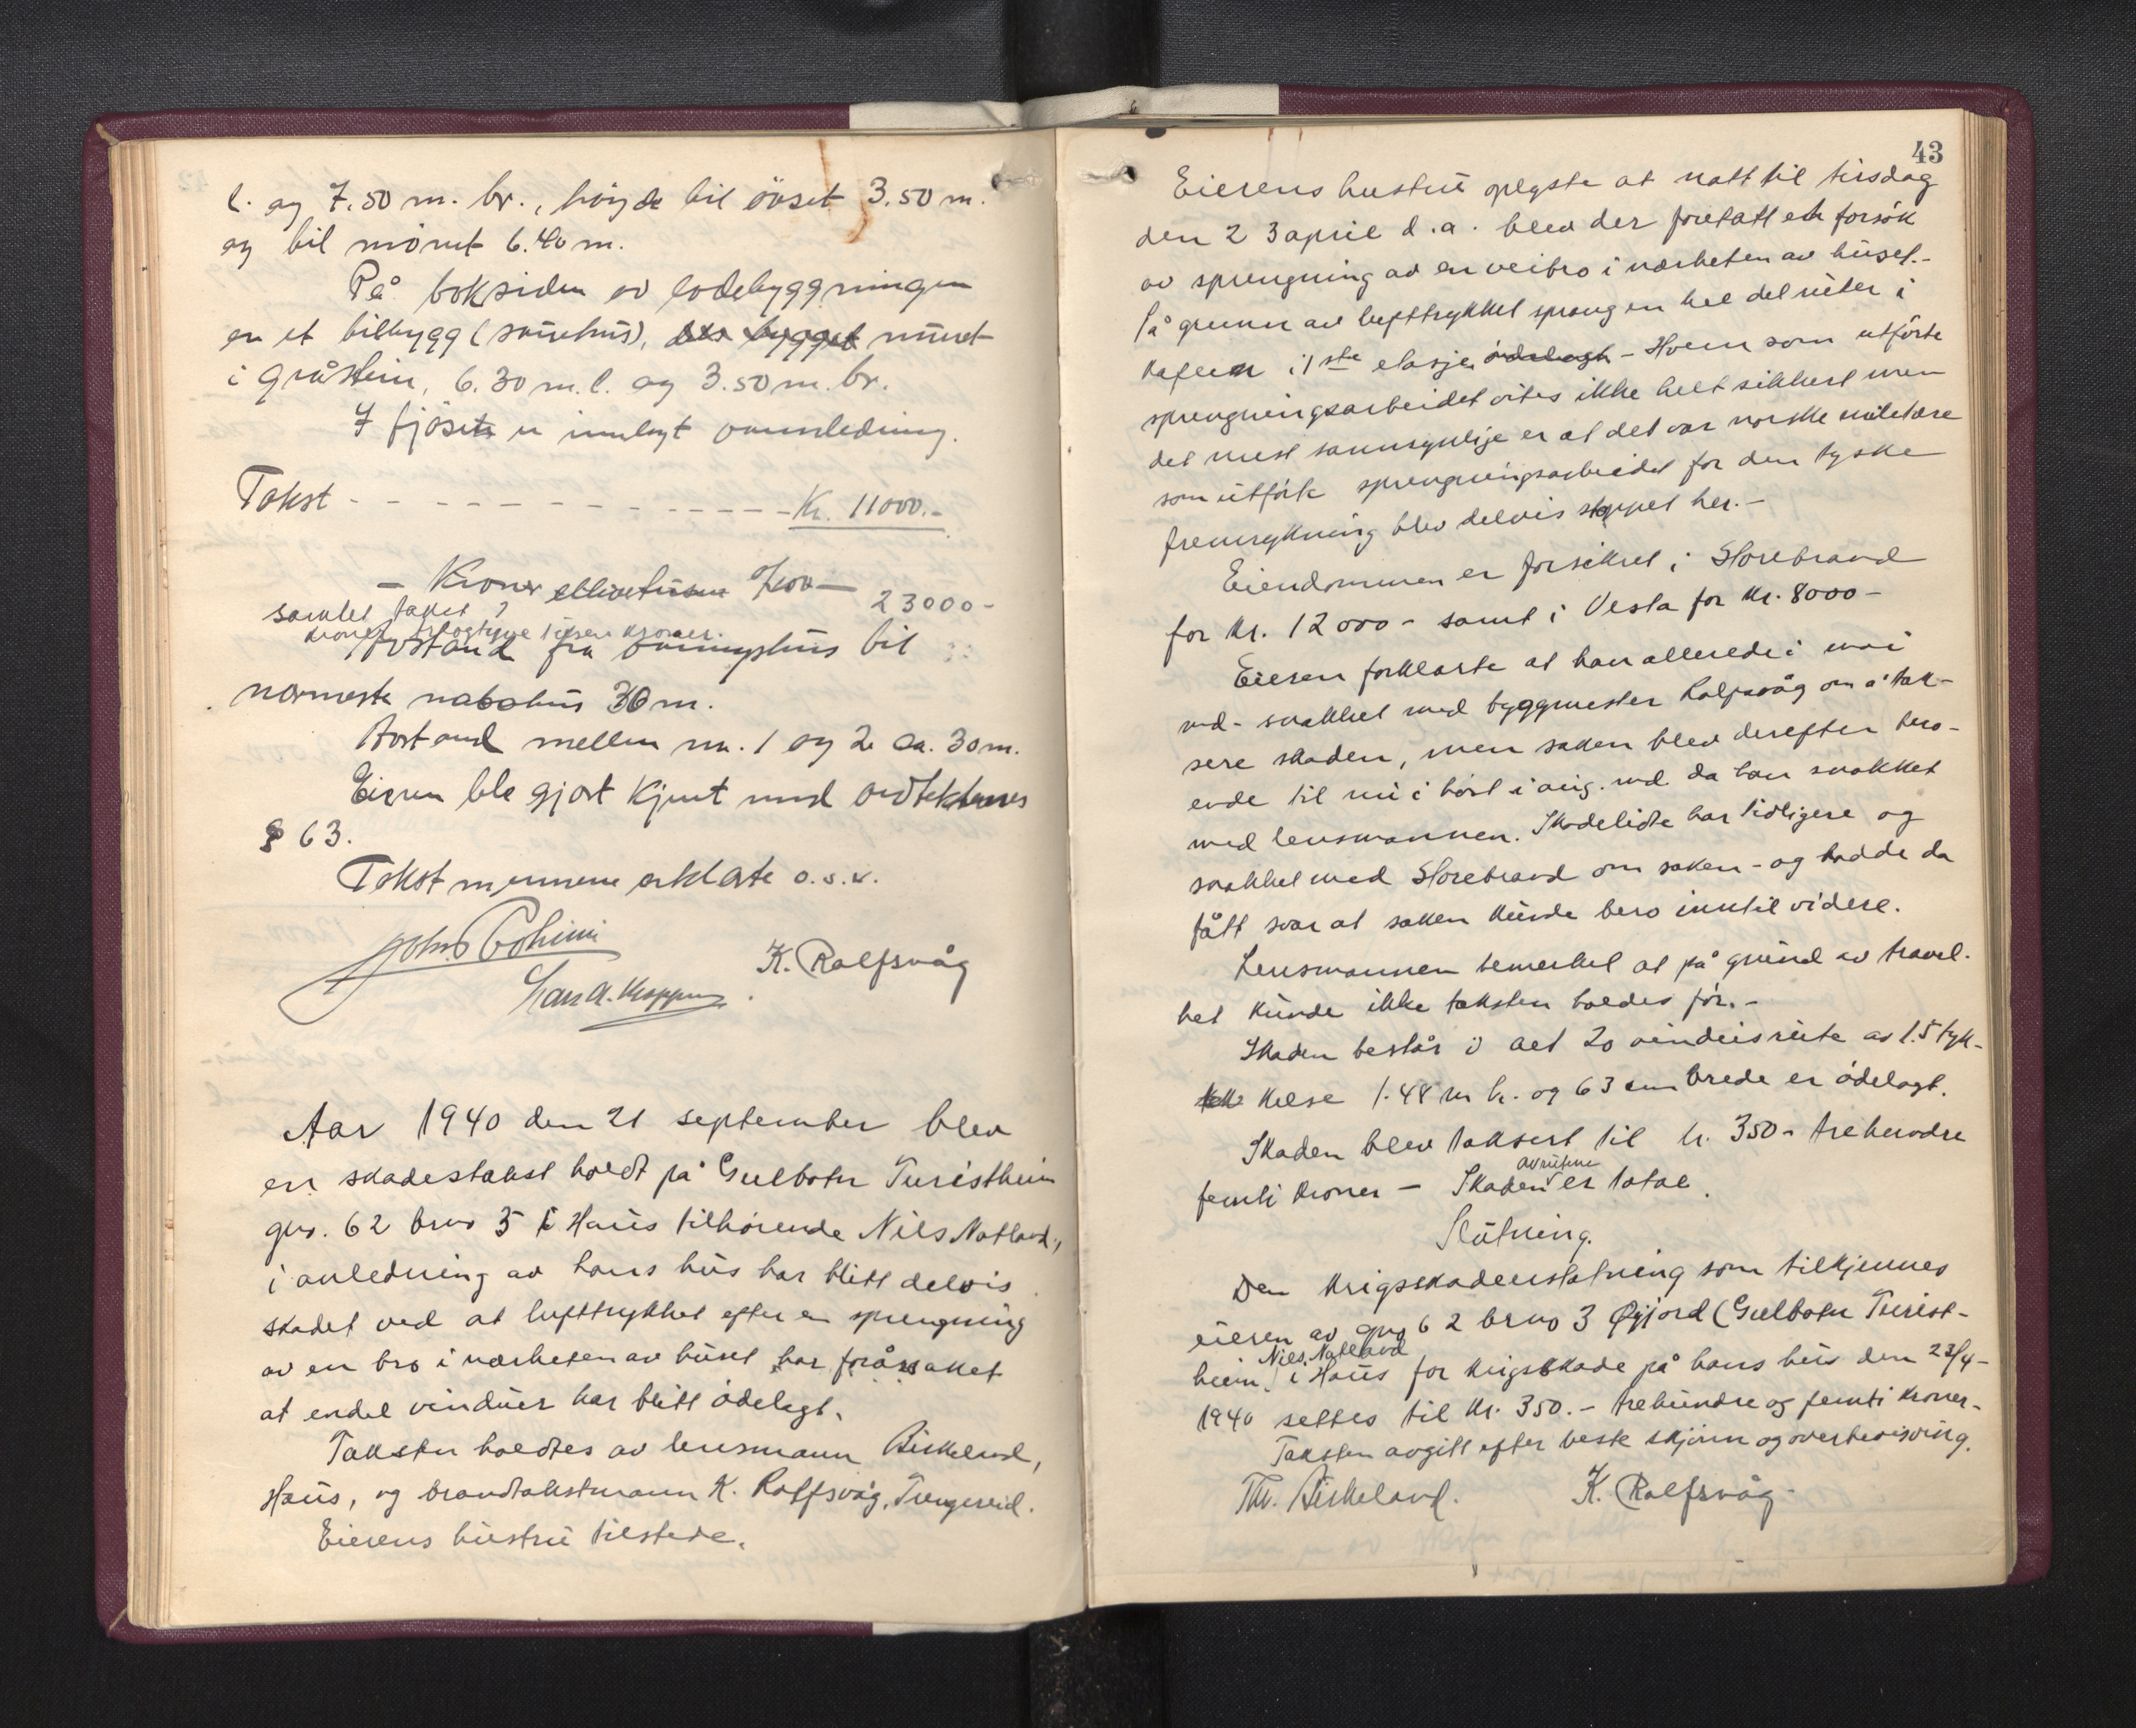 l. og 7.50 m. br., höyde til övset 3.50 m.
og til mönet 6.40 m.
På baksiden av lödebyggningen
er et tilbygg (sauehus), muret
i gråstein, 6.30 m. l. og 3.50 m. br.
I fjöset er innlagt vannledning.
Takst - - - - - - - - - - - - - Kr. 11000.-
- Kroner ellevetusen 7/00 -
samlet takst 23000-
kroner trogtyve tusen kroner.
Avstand fra våningshus til
nærmeste nabohus 30 m.
Avstand mellem nr. 1 og 2 ca. 30 m.
Eieren ble gjort kjent med vedtektenes
§ 63.
Takstmennene erklærte o.s.v.
K. Rolfsvåg
Lars A.
Aar 1940 den 21 september blev
en skadestakst holdt på Gulbotn Turistheim
gno. 62 bruo 3 i Haus tilhörende Nils Natland,
i anledning av hans hus har blitt delvis
skadet ved at lufttrykket efter en sprengning
av en bro i nærheten av huset har forårsaket
at endel vinduer har blitt ödelagt.
Taksten holdtes av lensmann Birkeland,
Haus, og brandtakstmann K. Rolfsvåg, Trengereid.
Eierens hustru tilstede.
43
Eierens hustru oplyste at natt til tirsdag
den 23 april d.a. blev der foretatt et forsök
av sprengning av en veibro i nærheten av huset.-
På grunn av lufttrykket sprang en hel del ruter i
kafeen i 1ste etasje ödelagt - Hvem som utförte
sprengningsarbeidet vites ikke helt sikkert men
det mest sannsynlige er at det var norske militære
som utförte sprengningsarbeidet for den tyske
fremrykning blev delvis stoppet her.-
Eiendommen er forsikret i Storebrand
for kr. 12000- samt i Vesta for kr. 8000-
Eieren forklarte at han allerede i mai
md- snakket med byggmester Rolfsvåg om å tak-
sere skaden, men saken blev derefter bero-
ende til nu i höst i aug. md da han snakket
med lensmannen. Skadelidte har tidligere og
snakket med Storebrand om saken - og hadde da
fått svar at saken kunde bero inntil videre.
Lensmannen bemerket at på grund av travel-
het kunde ikke taksten holdes för.-
Skaden består i at 20 vindusrute av 1.5 tyk-
kelse 1.48 m h. og 63 cm brede er ödelagt.
Skaden blev taksert til kr. 350- trehundre
femti kroner - Skaden av rutene er total.
Slutning.
Den krigsskadeerstatning som tilkjennes
eieren av gno 62 bruo 3 Öyjord (Gulbotn Turist-
heim) Nils Natland i Haus for krigsskade på hans hus den 23/4-
1940 settes til kr. 350.- trehundre og femti kroner-
Taksten avgitt efter beste skjönn og overbevisning.
Th. Birkeland. K. Rolfsvåg-